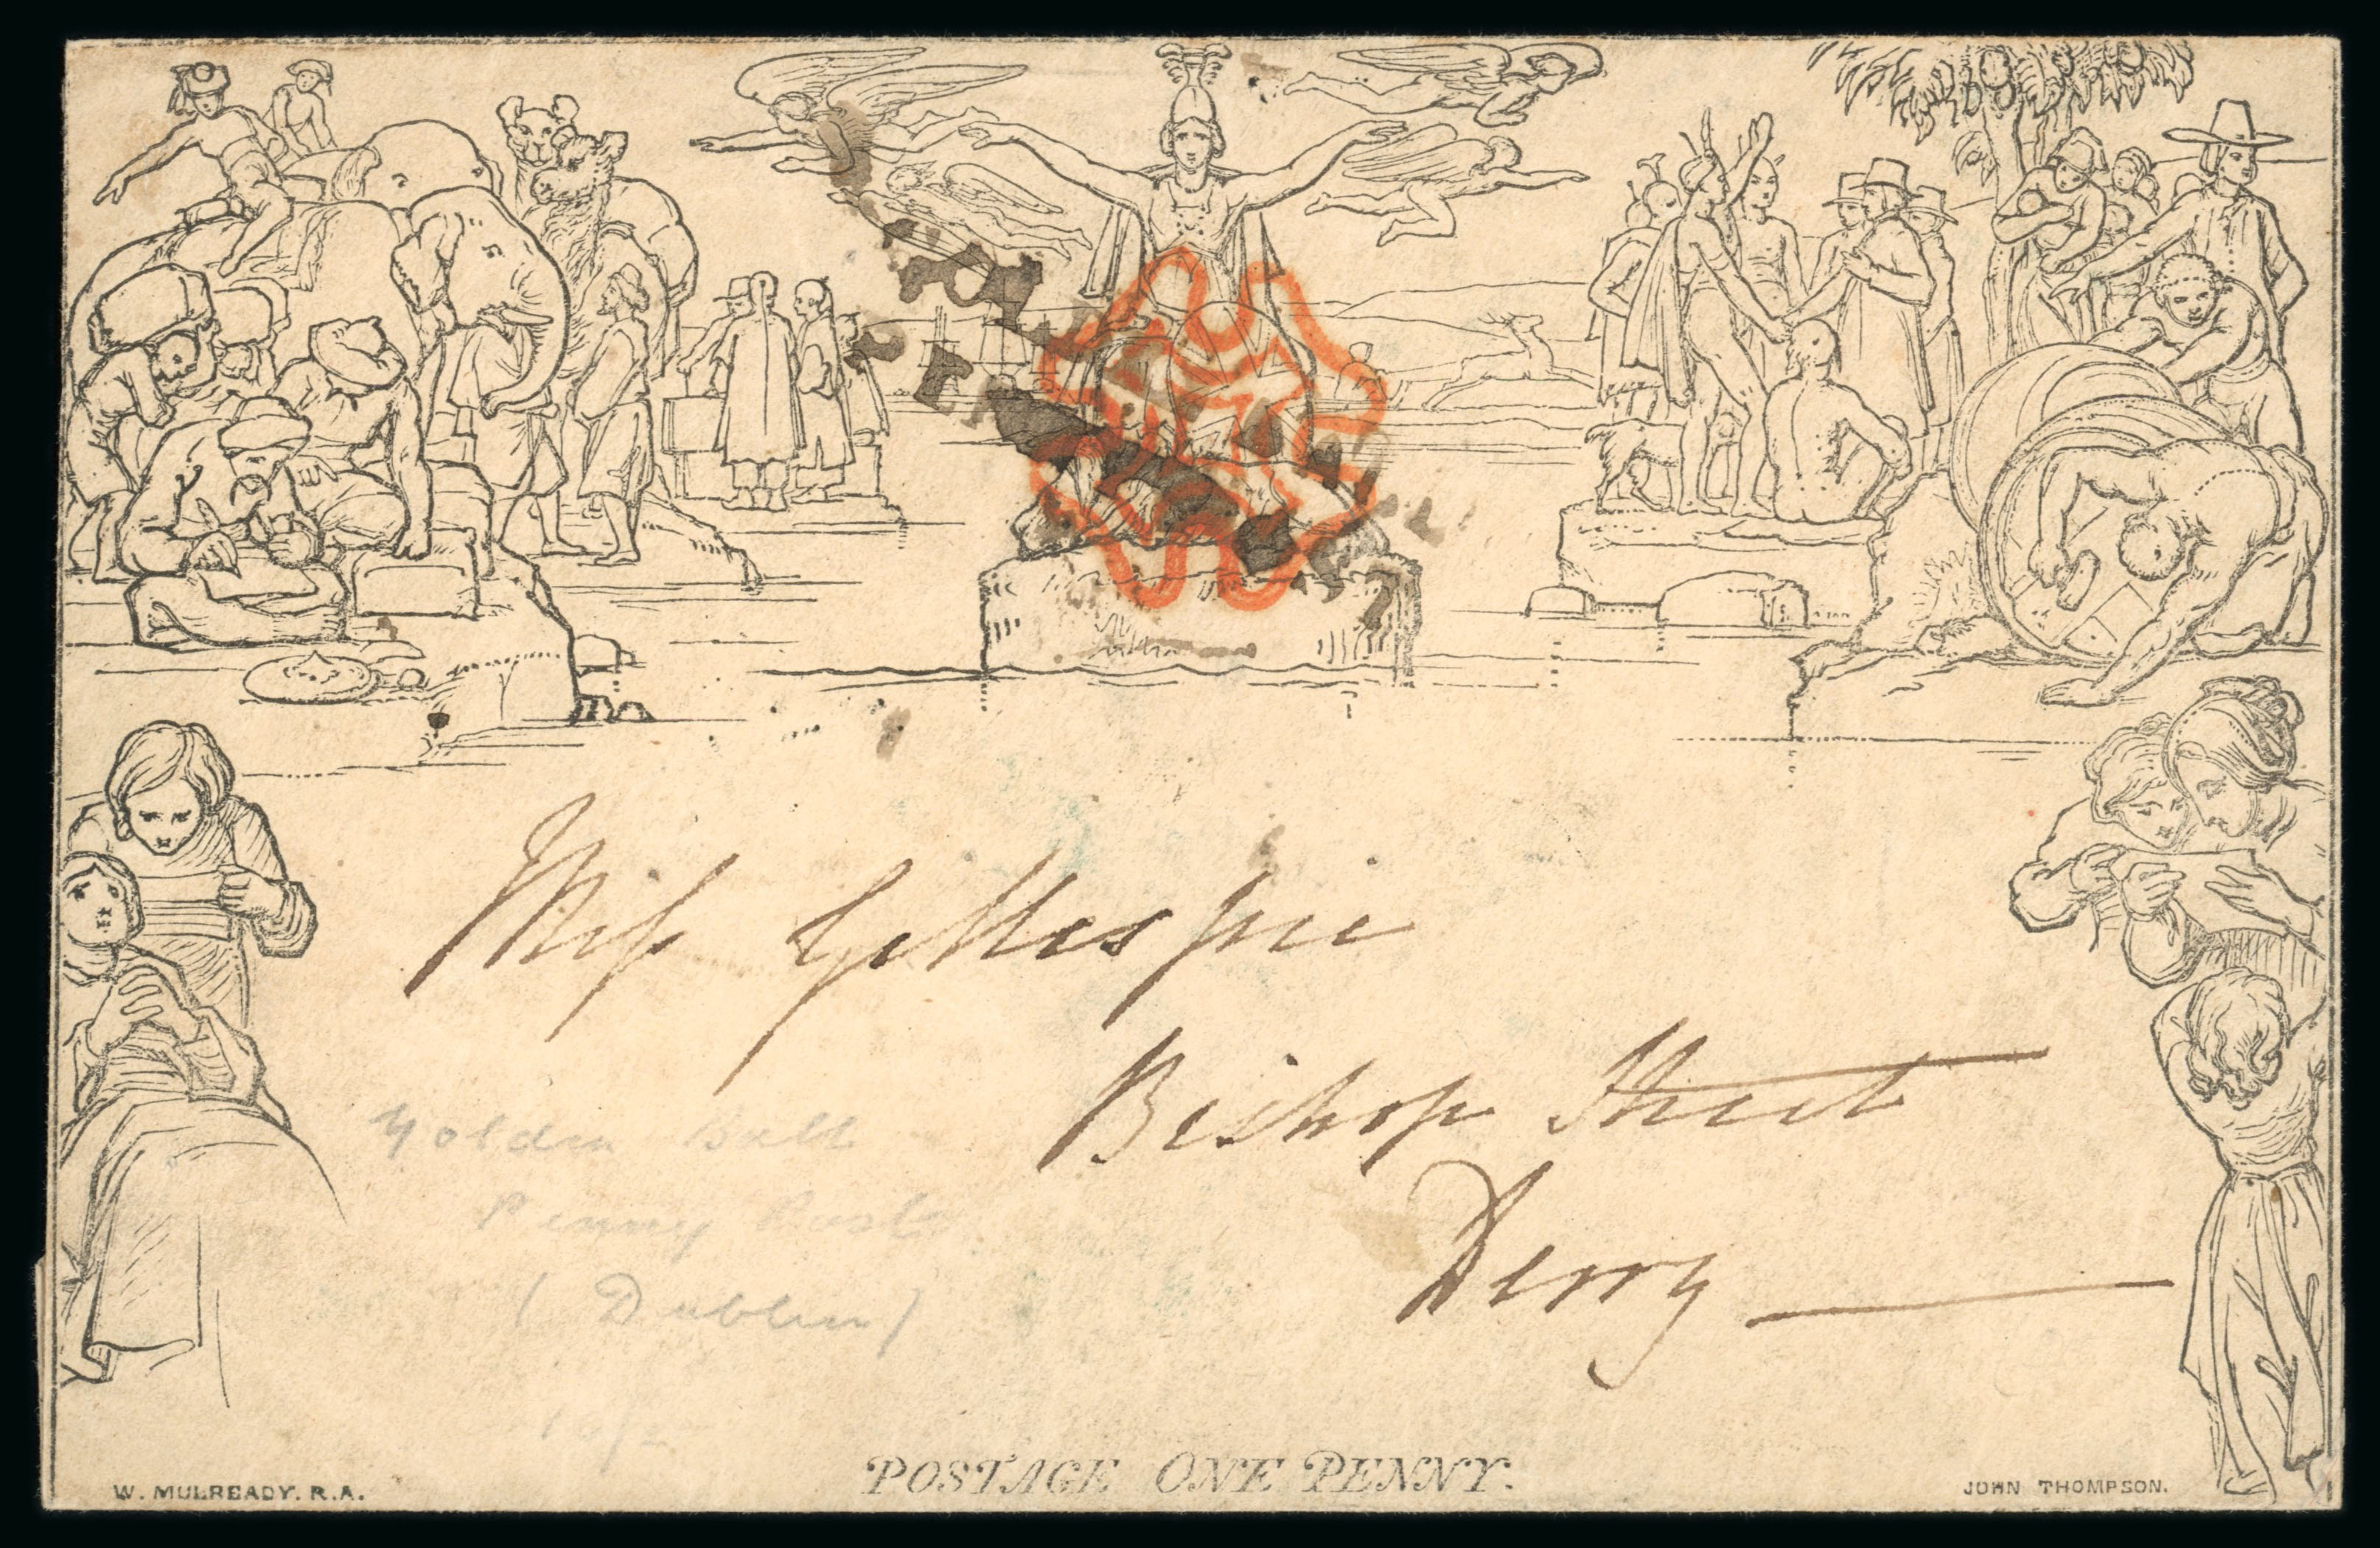 Miss Gillespie
Bishop Street
Derry
Golden Ball
Penny Post
(Dublin)
10/-
POSTAGE ONE PENNY.
W. MULREADY. R.A.
JOHN THOMPSON.